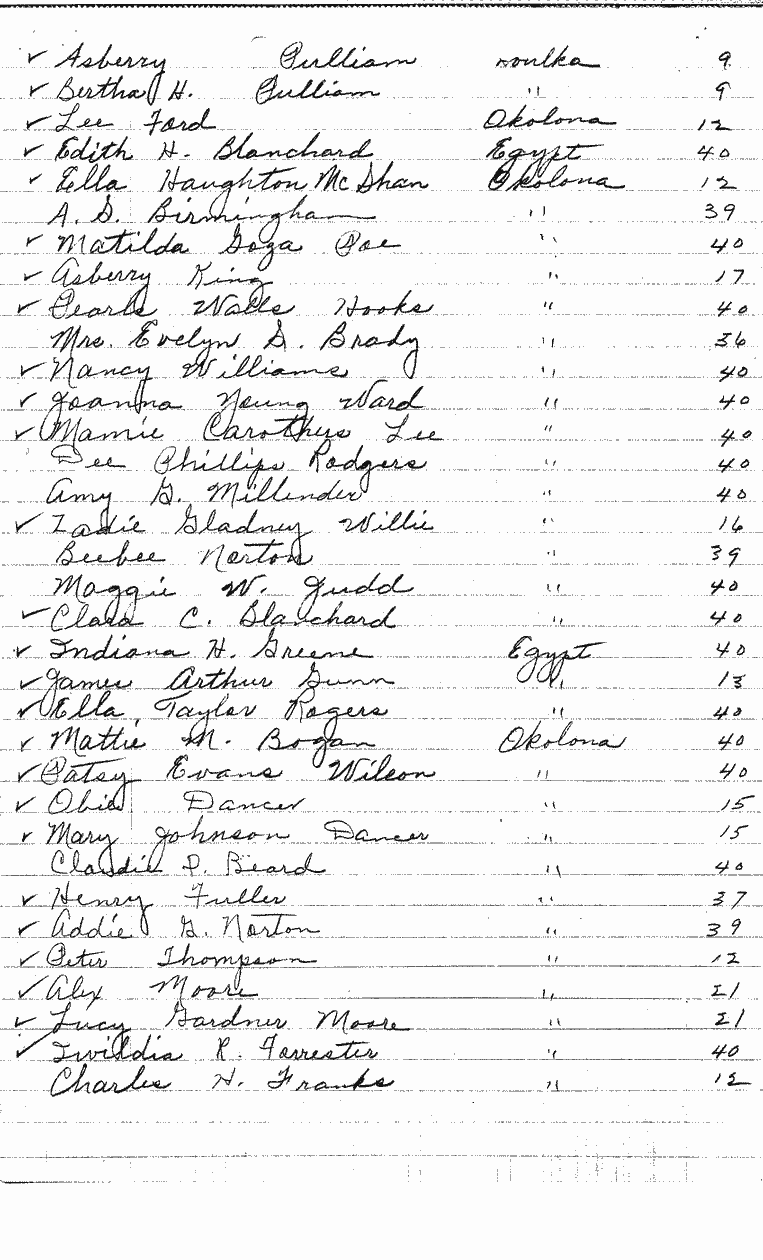 ✓ Asberry Pulliam Woulka 9
✓ Bertha H. Pulliam " 9
✓ Lee Ford Okolona 12
✓ Edith H. Blanchard Egypt 40
✓ Ella Haughton McShan Okolona 12
A. G. Birmingham " 39
✓ Matilda Goza Poe " 40
✓ Asberry King " 17
✓ Pearle Walls Hooks " 40
Mrs. Evelyn G. Brady " 36
✓ Nancy Williams " 40
✓ Joanna Young Ward " 40
✓ Mamie Carothers Lee " 40
Dee Phillips Rodgers " 40
Amy G. Millender " 40
✓ Zadie Gladney Willie " 16
Beebee Norton " 39
Maggie W. Judd " 40
✓ Clara C. Blanchard " 40
✓ Indiana H. Greene Egypt 40
✓ James Arthur Gunn " 13
✓ Ella Taylor Rogers " 40
✓ Mattie M. Bogan Okolona 40
✓ Patsy Evans Wilson " 40
✓ Obie Dancer " 15
✓ Mary Johnson Dancer " 15
Claudie P. Beard " 40
✓ Henry Fuller " 37
✓ Addie G. Norton " 39
✓ Peter Thompson " 12
✓ Alex Moore " 21
✓ Lucy Gardner Moore " 21
✓ Twilldia R. Forrester " 40
Charles H. Franks " 12